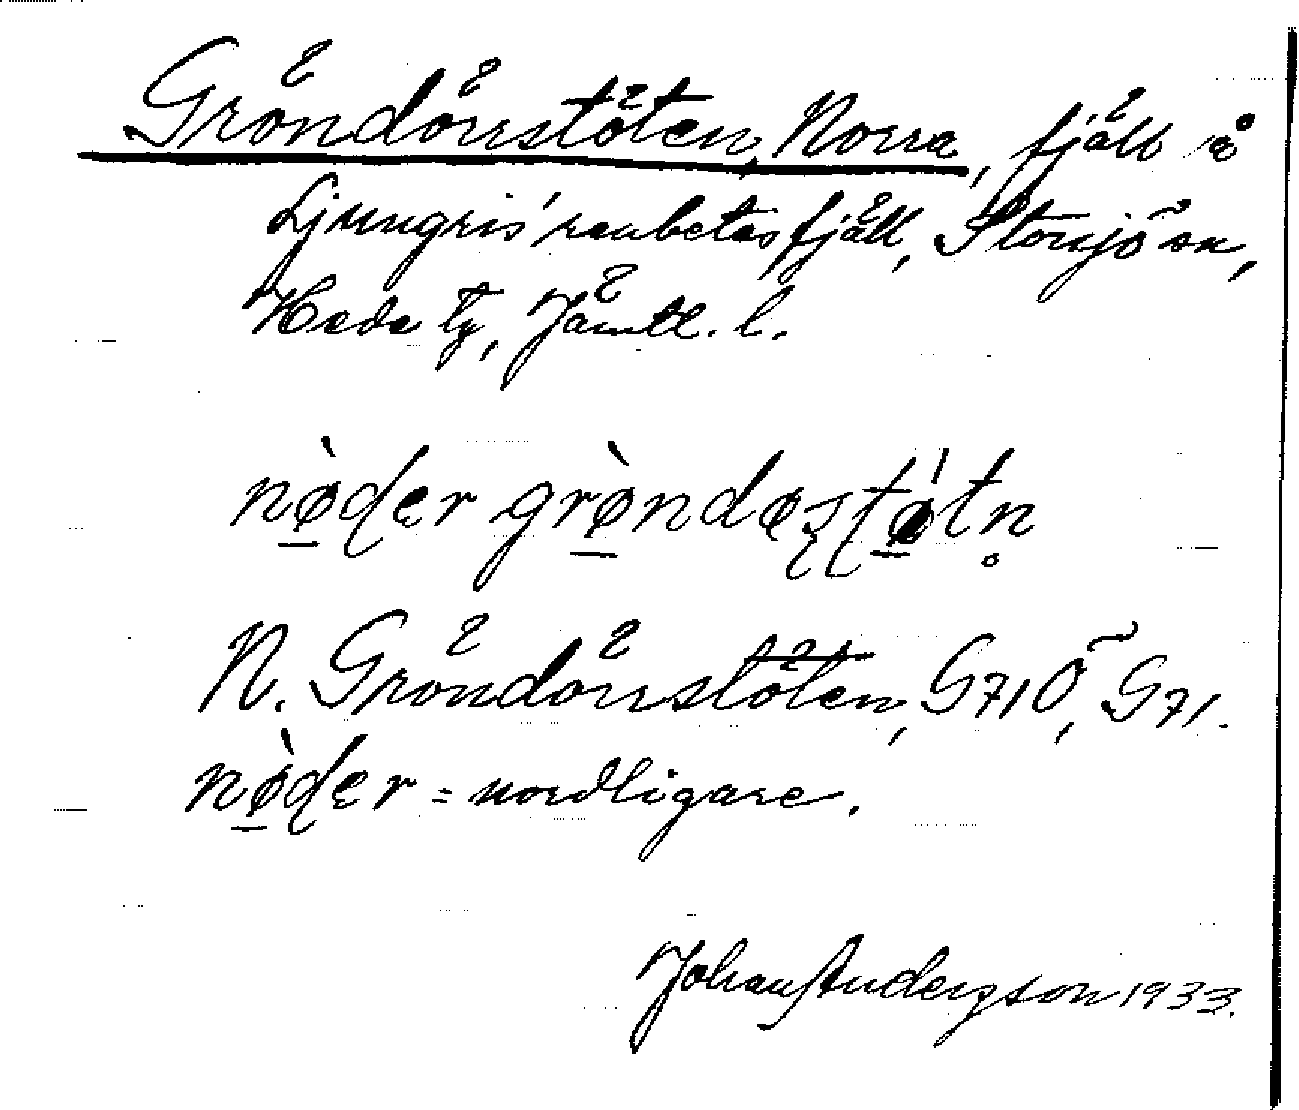 Gröndörrstöten, Norra, fjäll å
Ljungris' renbetesfjäll, Storsjö sn,
Hede tg, Jämtl. l.
nø̀đer grø̀ndesstø̀tn̥
N. Gröndörrstöten, G71Ö, G71.
nø̀đer = nordligare.
Johan Anderson 1933.